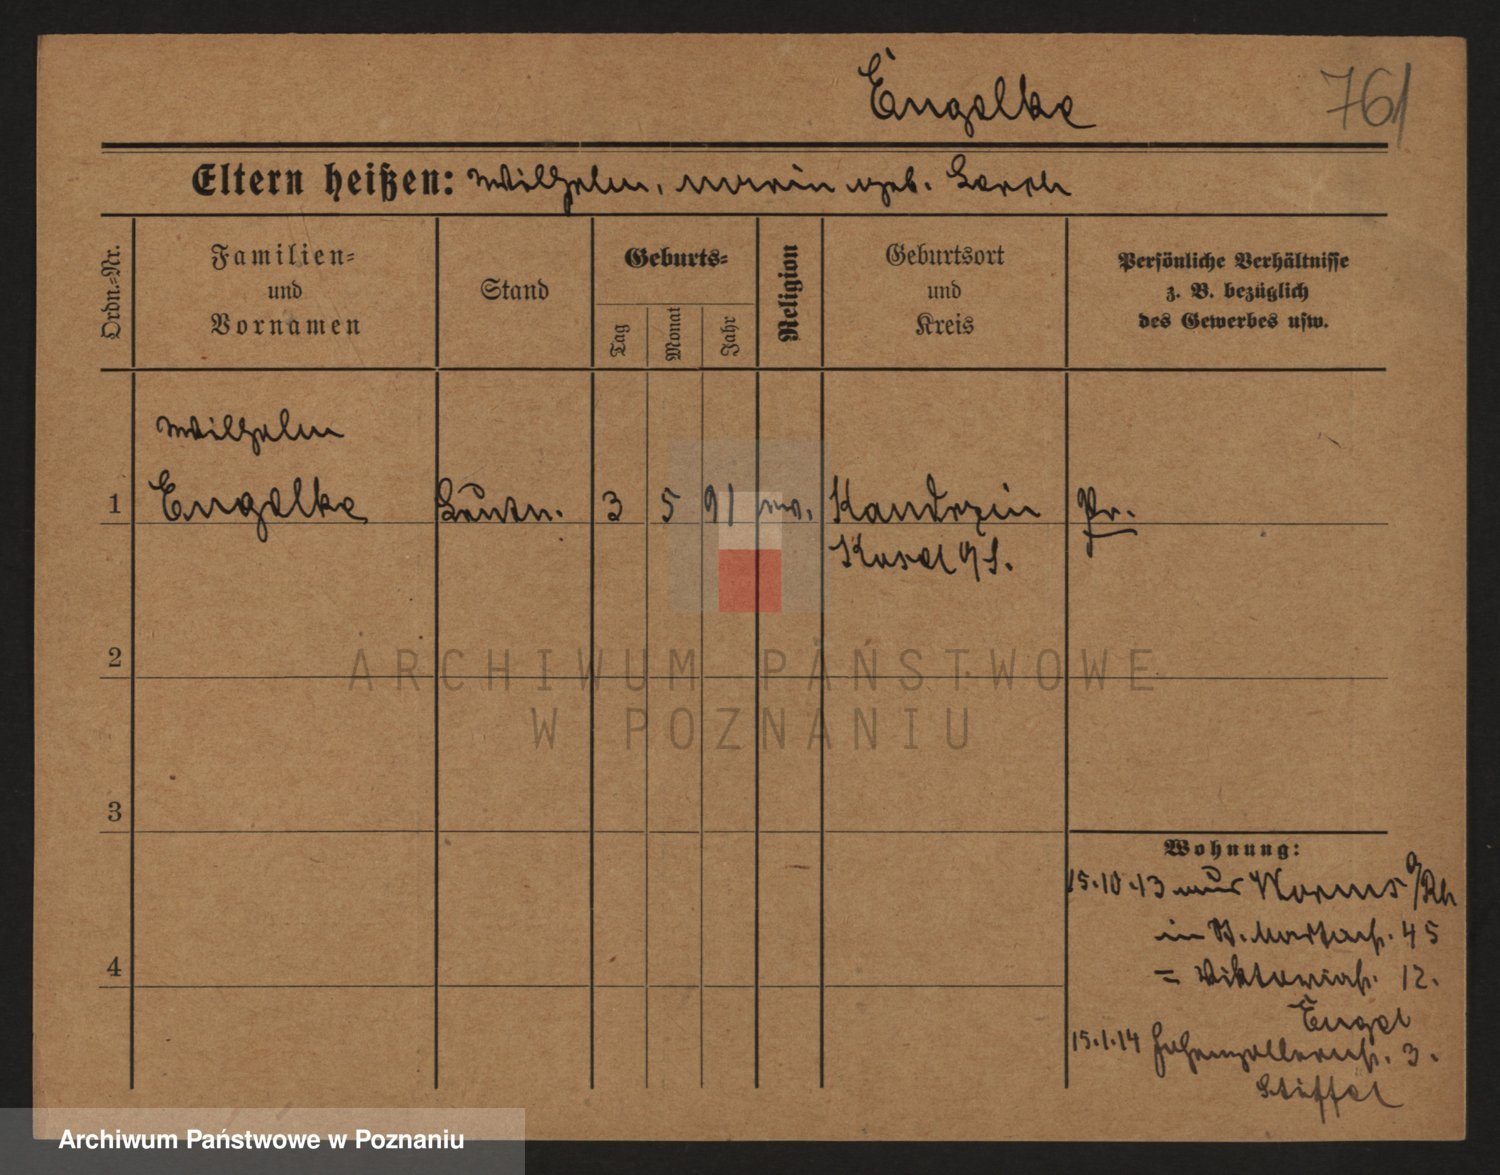 Engelke
761
Eltern heißen: Wilhelm, Marie geb. Lorch
Ordn.-Nr.
Familien-
und
Vornamen
Stand
Geburts-
Tag
Monat
Jahr
Religion
Geburtsort
und
Kreis
Persönliche Verhältnisse
z. B. bezüglich
des Gewerbes usw.
Wilhelm
1 Engelke Leutn. 3 5 91 ev. Kandrzin Pr.
Kosel O/S.
2
ARCHIWUM PAŃSTWOWE
W POZNANIU
3
Wohnung:
15.10.13 aus Worms a/Rh
in St. 45
4
= Viktoriastr. 12.
Engel
15.1.14 Hohenzollernstr. 3.
Stiffel
Archiwum Państwowe w Poznaniu